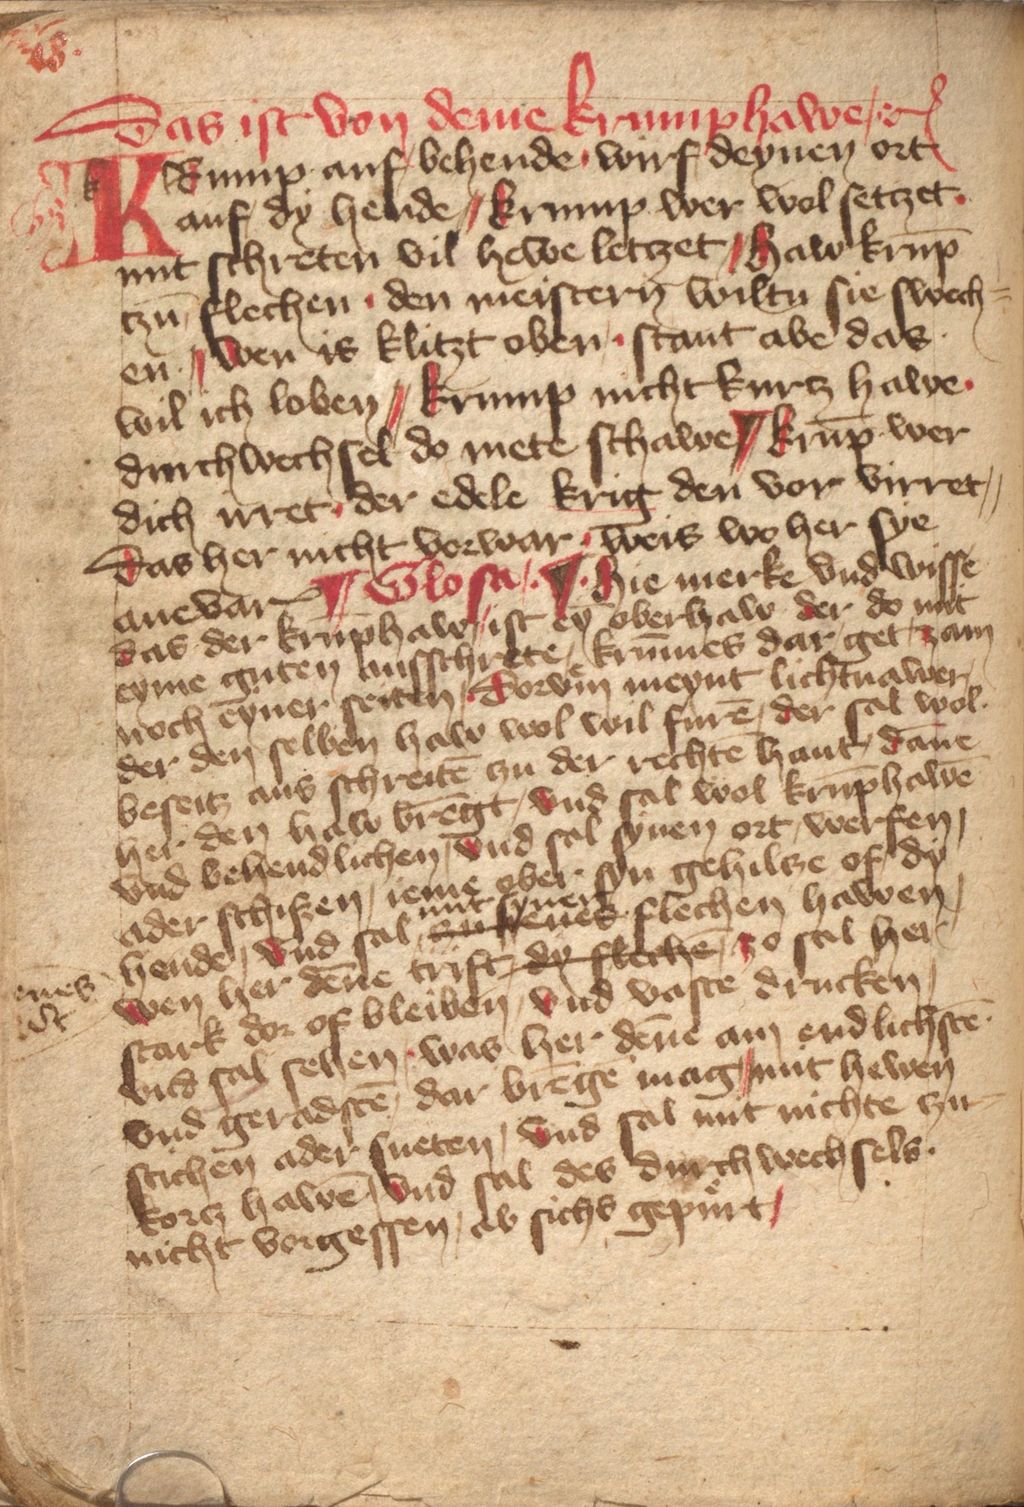 Das ist von deme Krumphawe / etc
KRump auf behende / wirf deynen ort
auf dy hende // Krump wer wol setzet ·
mit schreten vil hewe letzet // Haw krūp
czu flechen · den meistern wiltu sie swech=
en // Wen is klitzt oben / stant abe das
wil ich loben // Krump nicht kurtz hawe ·
durchwechsel do mete schawe // Krūp wer
dich irret · der edele krig den vor virret //
Das her nicht vorwar · weis wo her sye
ane var // Glosa · Hie merke vnd wisse
das der krūphaw / ist eȳ oberhaw der do mit
eyme guten ausschrete / krūmes dar get / zam
noch eyner seiten · Dorvm̄ meynt lichtnawer
der den selben haw wol wil furē / der sal wol
beseitz aus schreitē zu der rechtē hant / dāne
her den haw brengt / vnd sal wol krūphawē
vnd behendlichen / vnd sal synen ort / werfen /
ader schißen / ieme ober syn gehiltze of dy
hende / vnd sal mit syner flechen hawen /
enes Wen her dēne trift dy flechē / zo sal her
stark dor of bleiben / vnd vaste drucken /
vnd sal sehen · was her dēne am endlichstē
vnd geradstē / dar brēge mag // mit hewen
stichen ader sneten / vnd sal mit nichte zu
kortz hawē / vnd sal des durchwechsels ·
nicht vorgessen / ab sichs gepürt /